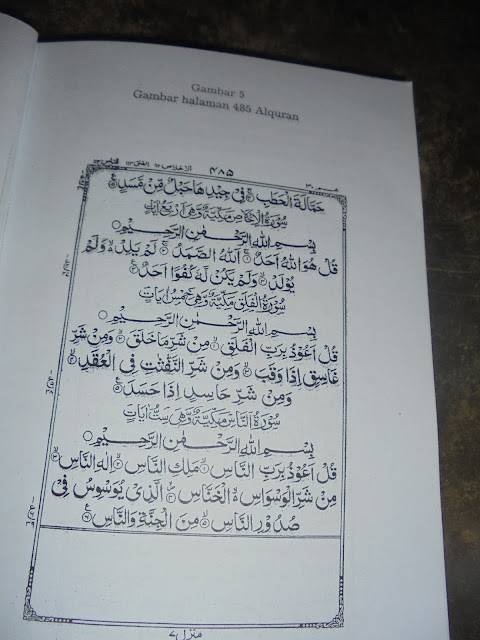 Gambar 5
Gambar halaman 485 Alquran
الناس ١١٤ الفلق ١١٣ الاخلاص ١١٢ ٤٨٥ عم ٣٠
حَمَّالَةَ الْحَطَبِ ۝ فِيْ جِيْدِهَا حَبْلٌ مِّنْ مَّسَدٍ ۝
سُوْرَةُ الْاِخْلَاصِ مَكِّيَّةٌ وَّهِيَ اَرْبَعُ اٰيَاتٍ
بِسْمِ اللّٰهِ الرَّحْمٰنِ الرَّحِيْمِ ۝
قُلْ هُوَ اللّٰهُ اَحَدٌ ۝ اَللّٰهُ الصَّمَدُ ۝ لَمْ يَلِدْ ۙ وَلَمْ
يُوْلَدْ ۝ وَلَمْ يَكُنْ لَّهٗ كُفُوًا اَحَدٌ ۝
سُوْرَةُ الْفَلَقِ مَكِّيَّةٌ وَّهِيَ خَمْسُ اٰيَاتٍ
بِسْمِ اللّٰهِ الرَّحْمٰنِ الرَّحِيْمِ ۝
قُلْ اَعُوْذُ بِرَبِّ الْفَلَقِ ۝ مِنْ شَرِّ مَا خَلَقَ ۝ وَمِنْ شَرِّ
غَاسِقٍ اِذَا وَقَبَ ۝ وَمِنْ شَرِّ النَّفّٰثٰتِ فِى الْعُقَدِ ۝
وَمِنْ شَرِّ حَاسِدٍ اِذَا حَسَدَ ۝
سُوْرَةُ النَّاسِ مَكِّيَّةٌ وَّهِيَ سِتُّ اٰيَاتٍ
بِسْمِ اللّٰهِ الرَّحْمٰنِ الرَّحِيْمِ ۝
قُلْ اَعُوْذُ بِرَبِّ النَّاسِ ۝ مَلِكِ النَّاسِ ۝ اِلٰهِ النَّاسِ ۝
مِنْ شَرِّ الْوَسْوَاسِ ۙ الْخَنَّاسِ ۝ الَّذِيْ يُوَسْوِسُ فِيْ
صُدُوْرِ النَّاسِ ۝ مِنَ الْجِنَّةِ وَالنَّاسِ ۝
منزل ٧